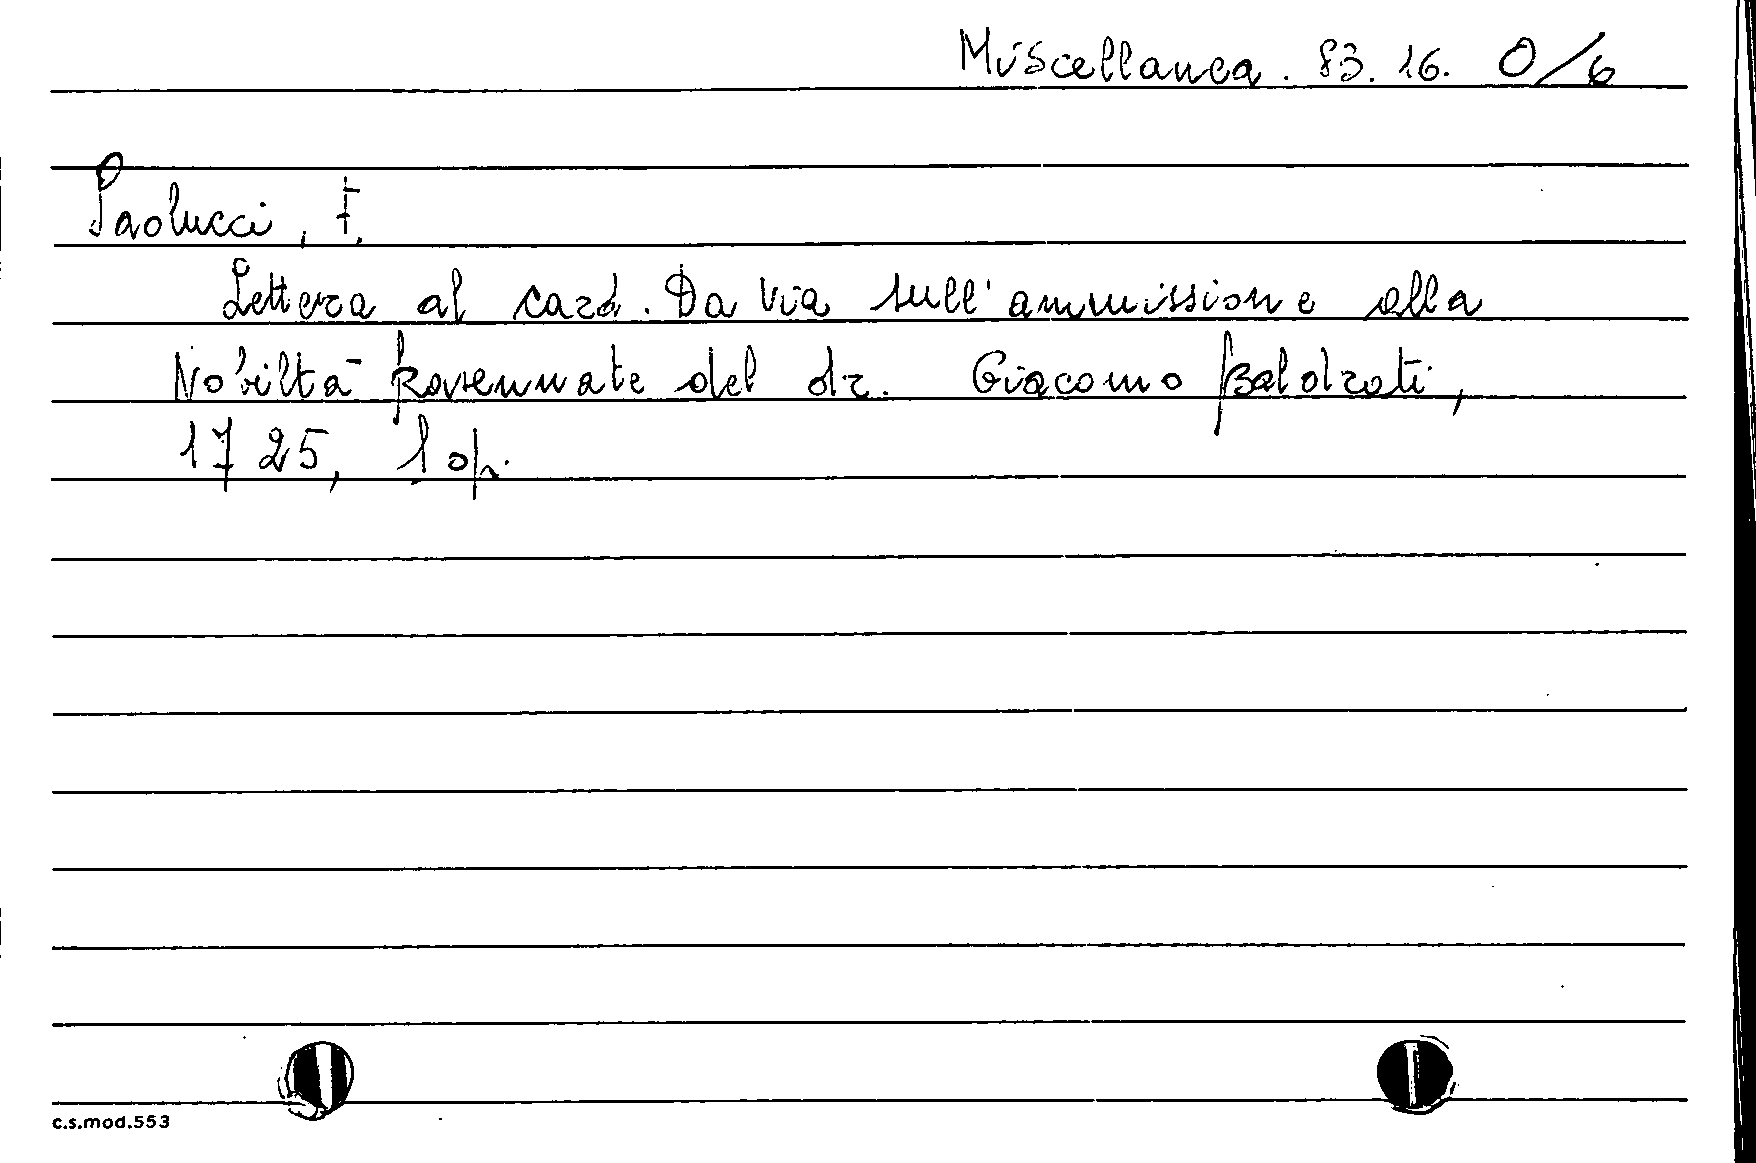 Miscellanea. 83. 16. O/6
Paolucci, F.
Lettera al card. Da Via sull'ammissione alla
Nobiltà Ravennate del dr. Giacomo Baldrati,
1725, 1 op.
c.s.mod.553